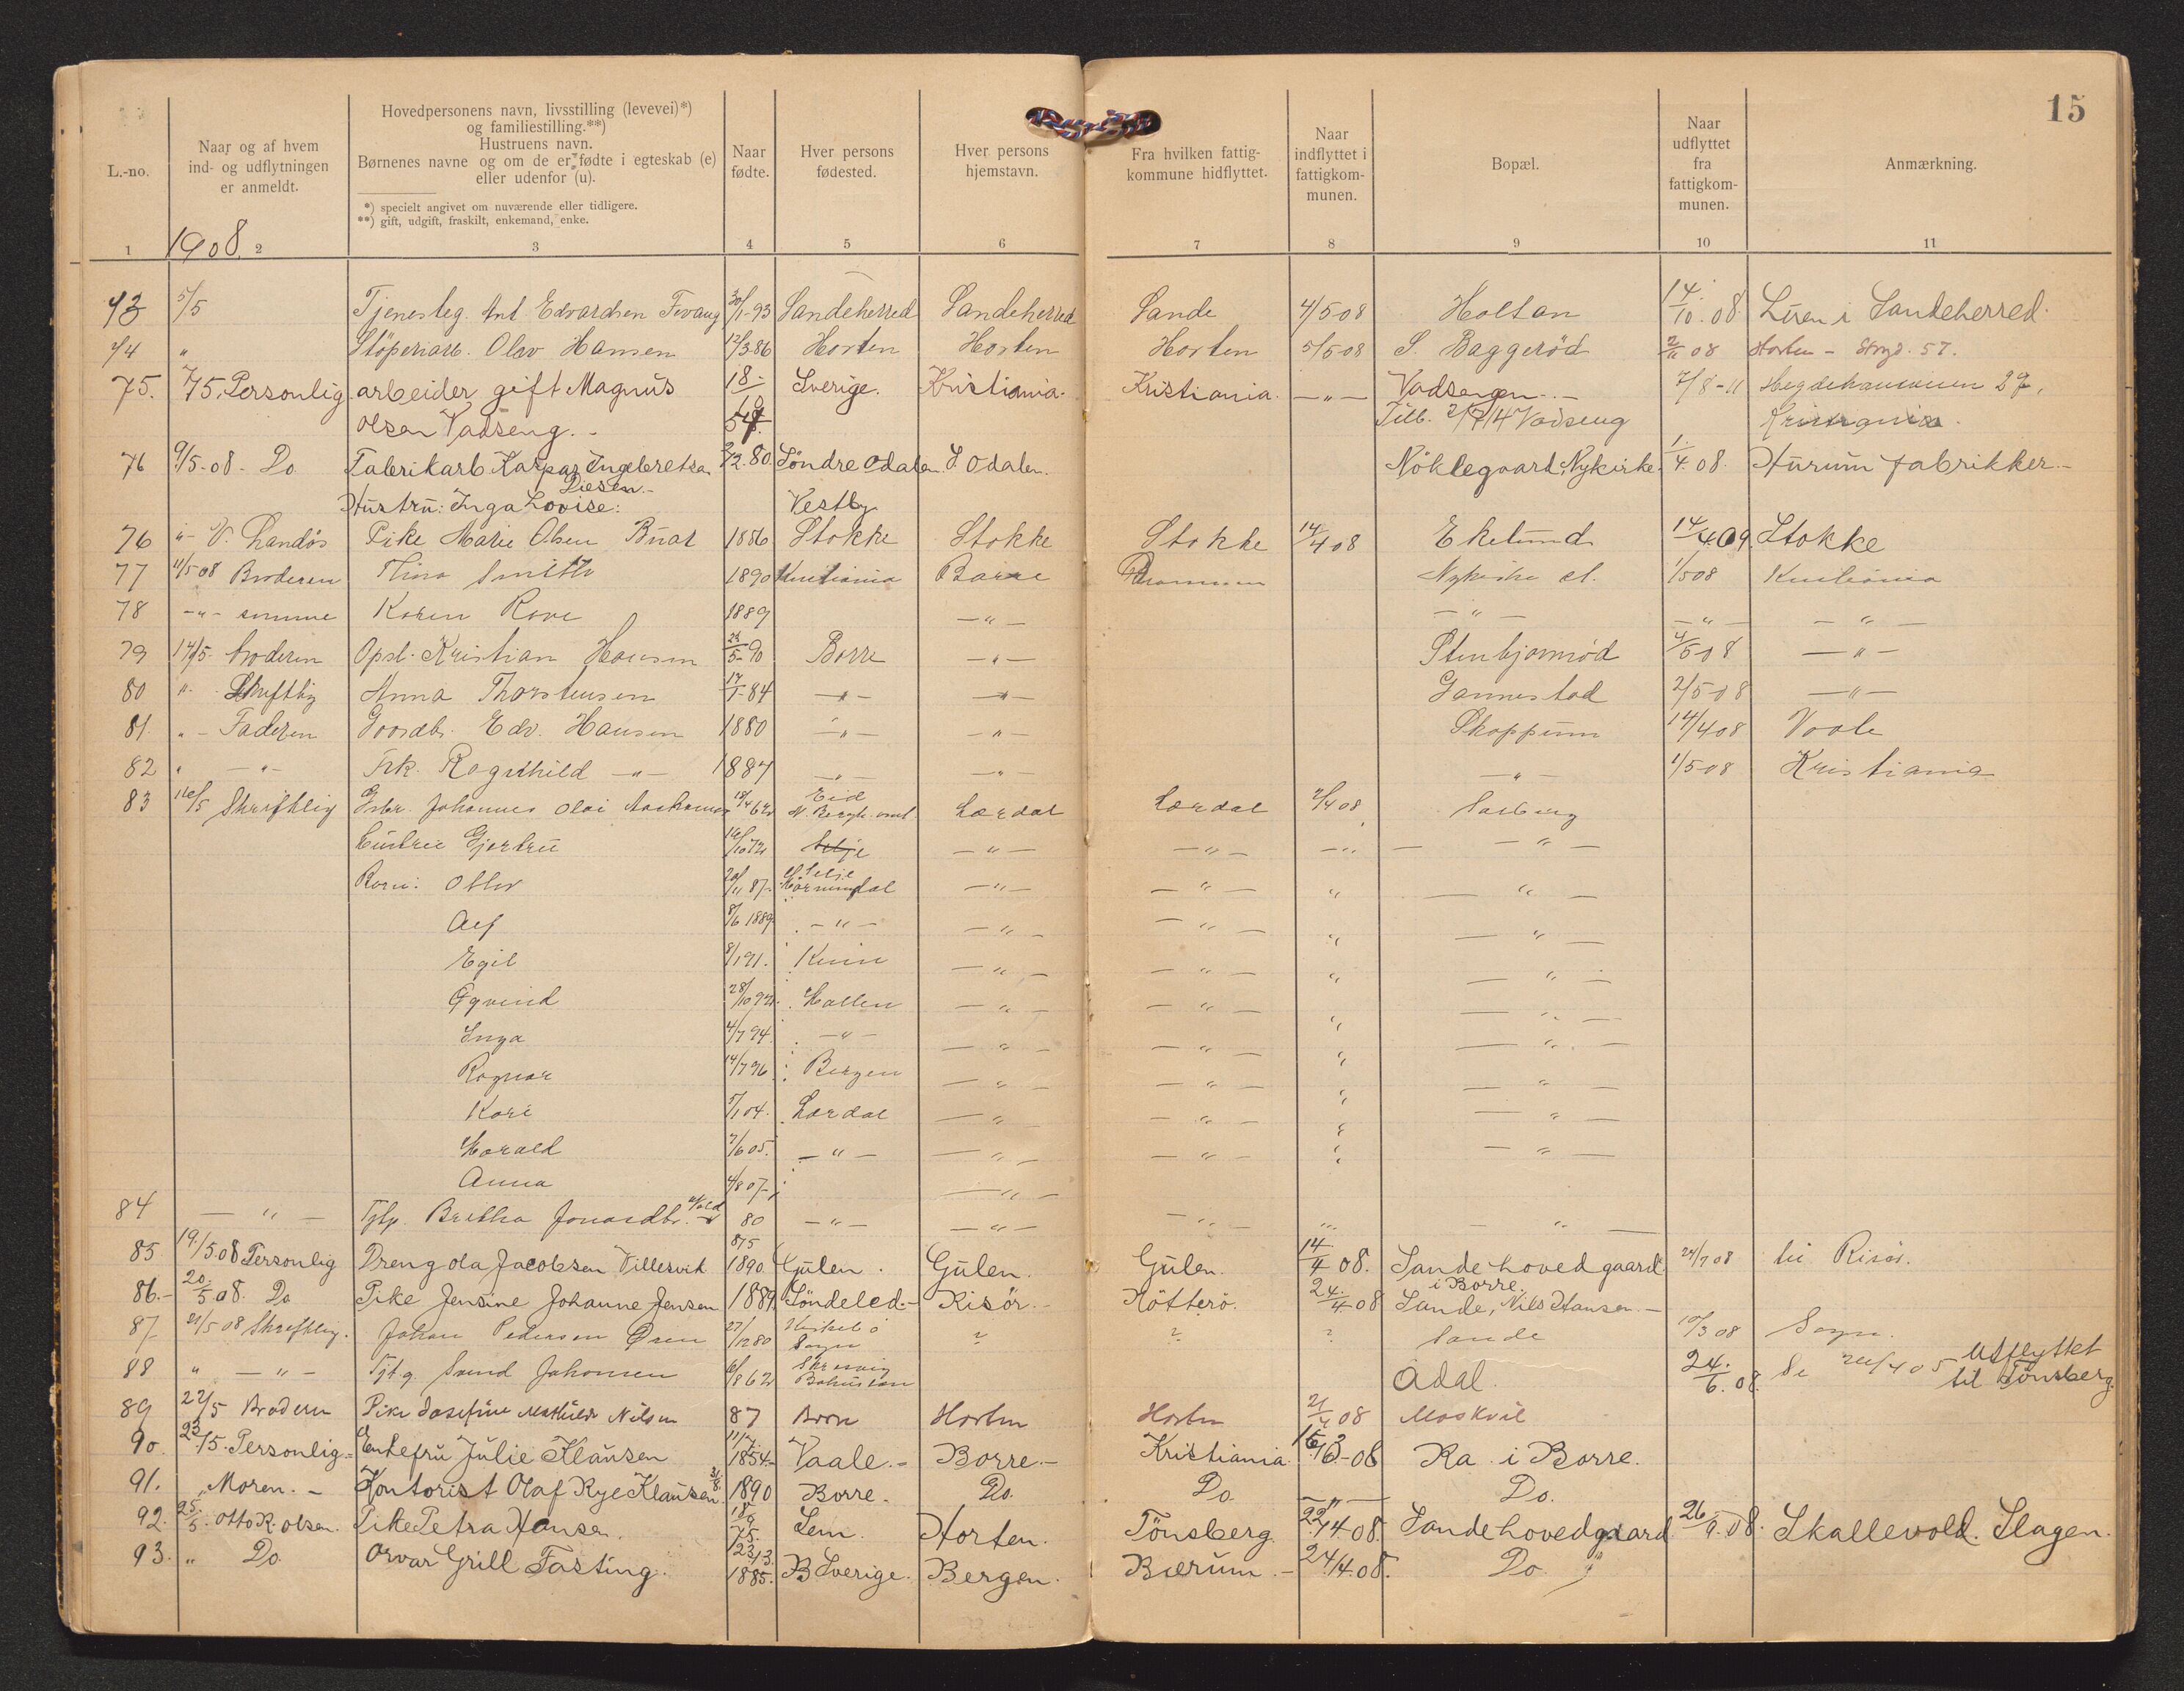 15
L.-no.
Naar og af hvem
ind- og udflytningen
er anmeldt.
Hovedpersonens navn, livsstilling (levevei)*)
og familiestilling.**)
Hustruens navn.
Børnenes navne og om de er fødte i egteskab (e)
eller udenfor (u).
*) specielt angivet om nuværende eller tidligere.
**) gift, udgift, fraskilt, enkemand, enke.
Naar
fødte.
Hver persons
fødested.
Hver persons
hjemstavn.
Fra hvilken fattig-
kommune hidflyttet.
Naar
indflyttet i
fattigkom-
munen.
Bopæl.
Naar
udflyttet
fra
fattigkom-
munen.
Anmærkning.
1 1908. 2 3 4 5 6 7 8 9 10 11
73 5/5 Tjenesteg. Ant Edvardsen Fevang 30/1-93 Sandeherred Sandeherred Sande 4/5 08 Holtan 14/10.08 i Sandeherred.
74 " Støperiarb. Olav Hansen 12/3 86 Horten Horten Horten 5/5 08 S. Baggerød 2/11 08 Horten - 57.
75. 7/5. Personlig. arbeider gift Magnus 18- Sverige. Kristiania. Kristiania. -"- Vadsengen.- 7/8-11
Olsen Vadseng.- 54. Tilb. 14 Vadseng
76 9/5-08- Do Fabrikarb Kaspar Ingebretsen 80. Søndre Odalen S. Odalen. Nøklegaard, Nykirke. 1/4.08. Hurum fabrikker.-
Diesen.-
Hustru: Inga Lovise: Vestby
76 "- V. Sandøs Pike Marie Olsen 1886 Stokke Stokke Stokke 14/4 08 Ekelund 14/4 09. Stokke
77 11/5 08 Broderen Smith 1890 Kristiania Borre Nykirke st. 1/5 08 Kristiania
78 -"- samme Karen Rove 1889 -"- -"- -"- -"-
79 14/5. broderen Opsl. Kristian Hansen 5-90 Borre -"- 4/5 08 -"-
80 ". Skriftlig Anna Thorstensen 17/1-84 -"- -"- Gannestad 2/5 08 -"-
81. "- Faderen Gaardbr. Edv. Hansen 1880 -"- -"- Skoppum 14/4 08 Vaale
82 " -"- Frk. Ragnhild -"- 1887 -"- -"- -"- 1/5 08 Kristiania
83 16/5 Skriftlig Gbr. Johannes Olai 18/4 62 Eid Lærdal Lærdal 2/4 08
N. Bergh. amt
hustru Gjertru 16/10 72 Selje -"- -"- -"- -"-
Born: 20/11 87- Selje -"- -"- " -"-
Hornindal
Alf 8/6 1889 -"- -"- -"- " -"-
Egil 8/1 91. Kinn -"- -"- " -"-
Øyvind 28/10 92. -"- -"- " -"-
Inga 4/7 94. -"- -"- -"- " -"-
Ragnar 14/7 96 Bergen -"- -"- " -"-
Kari 5/1 04. Lærdal -"- -"- " -"-
Harald 7/6 05. -"- -"- -"- " -"-
Anna 4/8 07- -"-
84 -"- Tjp. Bertha 80 -"- -"- -"- " -"-
85 19./5.08 Personlig Dreng Ola Jacobsen Villesvik 1890. Gulen. Gulen. Gulen. 14/4 08. Sande hovedgaard 24/7 08 til Risør.
i Borre.
86.- 20/5 08. Do Pike Jensine Johanne Jensen 1889. Søndeled.- Risør.- Nøtterø. 24/4 08 Sande, Nils Hansen.-
87 21/5 08 Skriftlig. Johan Pedersen Øren 27/12 80 ? ? ? Sande 10/3 08 Sogn.
Sogn
88 " -"- Tjtg. Svend Johansen 6/8 62 Adal. 24./6. 08. Se 05 Udflyttet
Bohuslän til Tønsberg.
89 22/5 Broderen Pike Josefine Mathilde Nilsen 87 Borre Horten Horten 21/4 08 Moskvil
90. 23/5. Personlig= Enkefru Julie Klausen 1854.- Vaale.- Borre.- Kristiania. -08 Ra i Borre.
91. " Moren.- Kontorist Olaf Rye Klausen 1890 Borre. Do. Do. -"- Do.
92. 25/5. Otto R. Olsen. Pike Petra Hansen. 75. Sem. Horten. Tønsberg. 22/4 08. Sande hovedgaard 26/9.08. Skallevold. Slagen.
93. " Do. Orvar Grill Fasting. 23/3. 1885. Sverige. Bergen. Bærum.- 24/4.08. Do